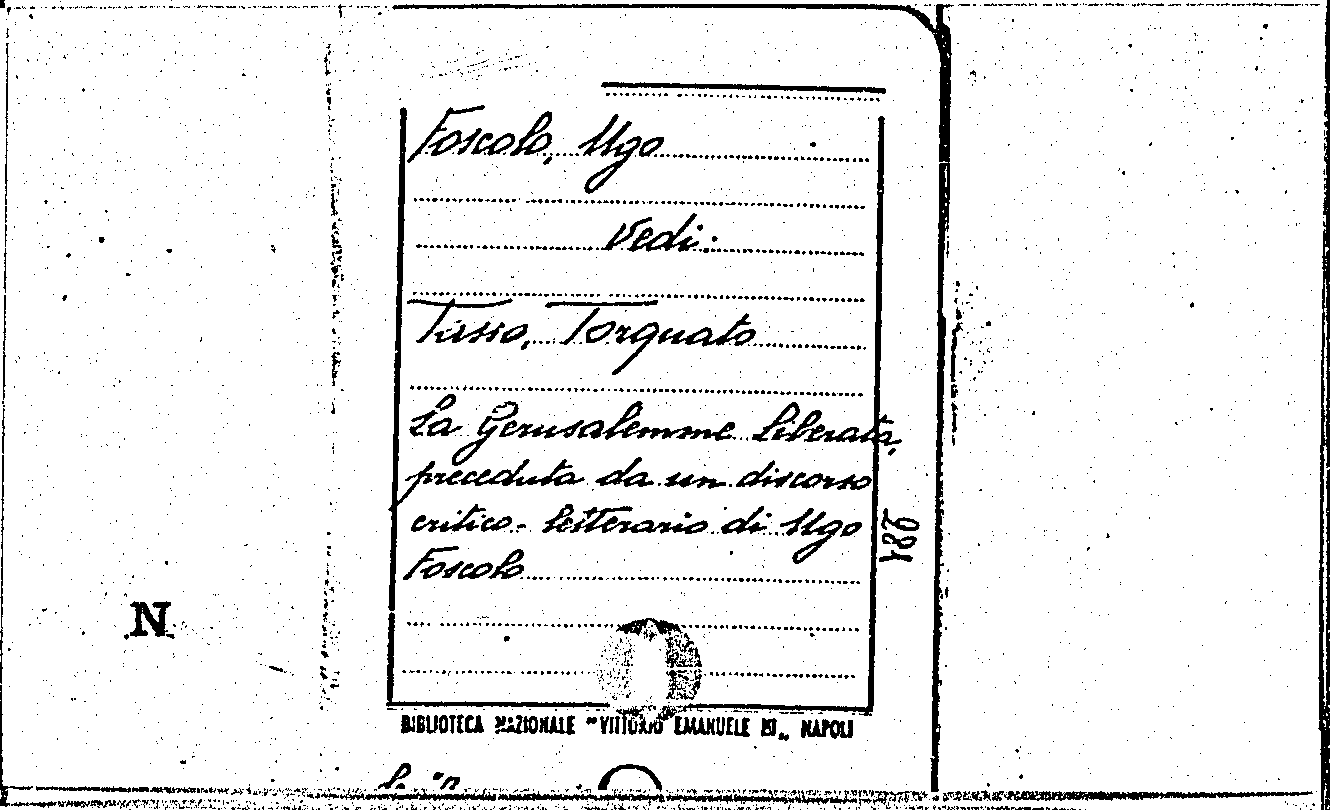 Foscolo, Ugo
Vedi:
Tasso, Torquato
La Gerusalemme liberata,
preceduta da un discorso
critico-letterario di Ugo
Foscolo
281
N
BIBLIOTECA NAZIONALE "VITTORIO EMANUELE III„ NAPOLI